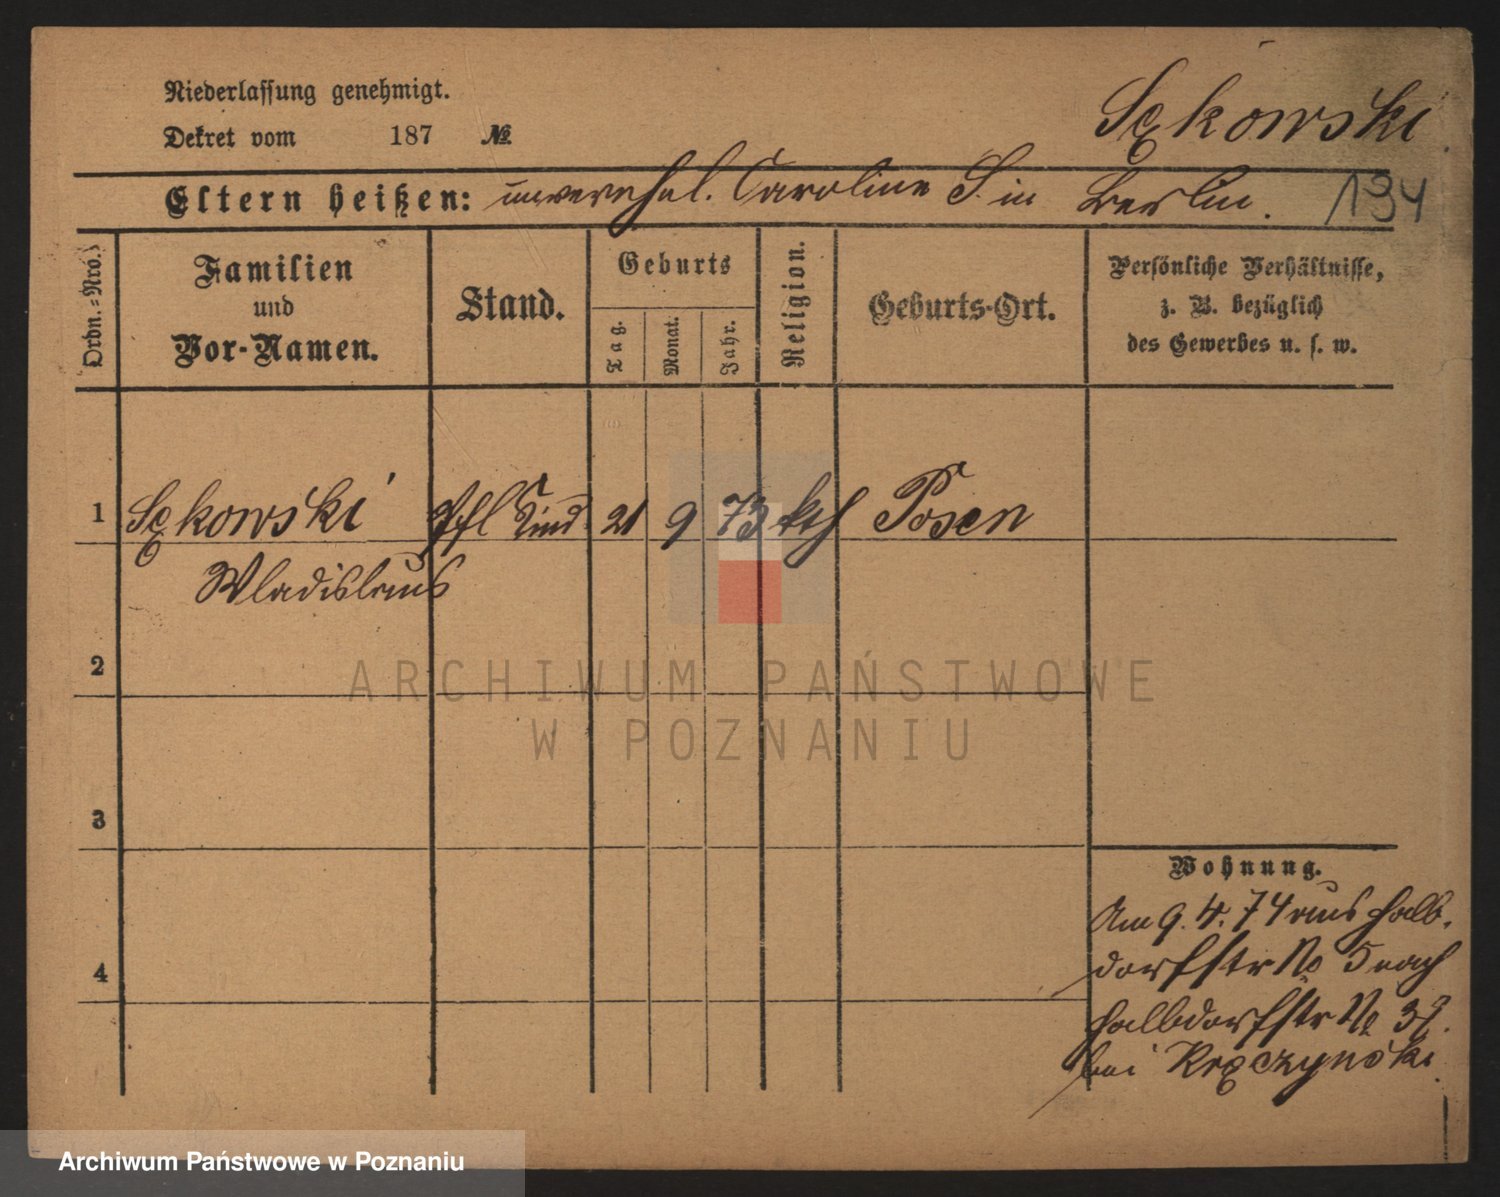 Niederlassung genehmigt.
Dekret vom 187 №
Sękowski
Eltern heißen: unverehel. Caroline S. in Berlin.
194
Ordn.-Nro.
Familien
und
Vor-Namen.
Stand.
Geburts
Tag. Monat. Jahr.
Religion.
Geburts-Ort.
Persönliche Verhältnisse,
z. B. bezüglich
des Gewerbes u. s. w.
1 Sękowski Pfl Kind 21 9 73 kth Posen
Wladislaus
2
3
4
Wohnung.
Am 9. 4. 74 aus Halb-
dorfstr No 5 nach
Halbdorfstr No
bei
ARCHIWUM PAŃSTWOWE
W POZNANIU
Archiwum Państwowe w Poznaniu